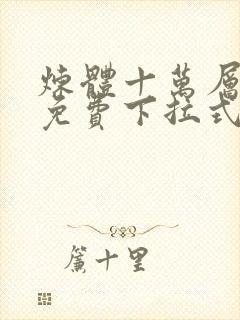 煉體十萬層
免費下拉式
簾十里